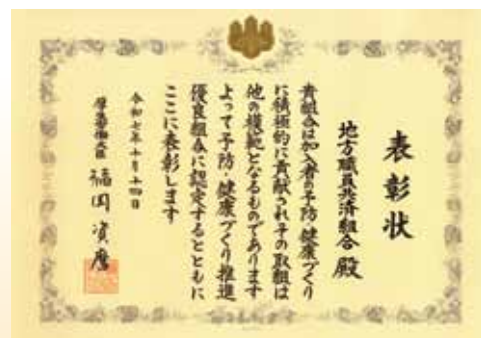 表彰状
地方職員共済組合 殿
貴組合は加入者の予防・健康づくり
に積極的に貢献されその取組は
他の模範となるものであります
よって予防・健康づくり推進
優良組合に認定するとともに
ここに表彰します
令和七年十月十四日
厚生労働大臣 福岡資麿